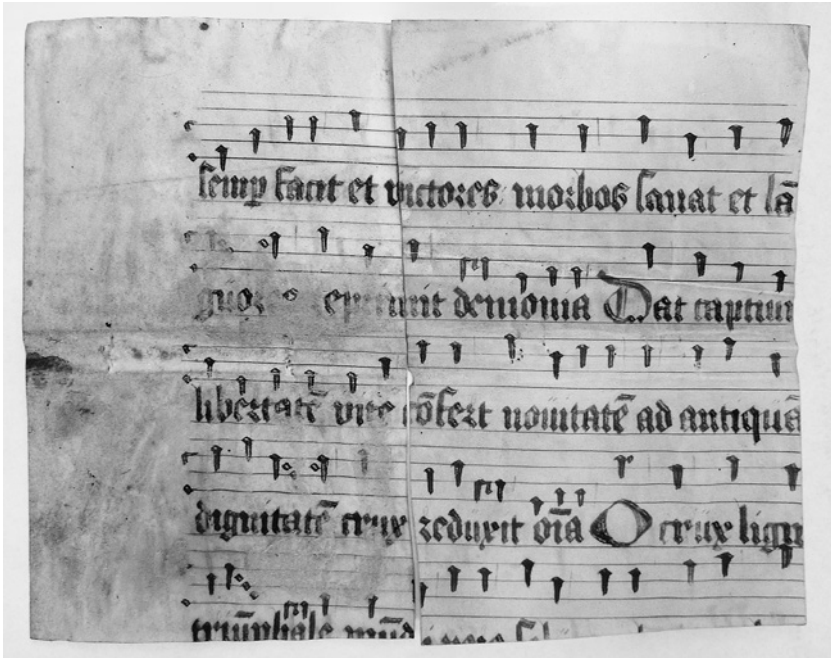 semꝑ facit et victores morbos sanat et lā
guor reprimit demonia Dat captiui
libertatē vite cōfert nouitatē ad antiquā
dignitatē crux reduxit oīa O crux lignū
triūphale mūdi